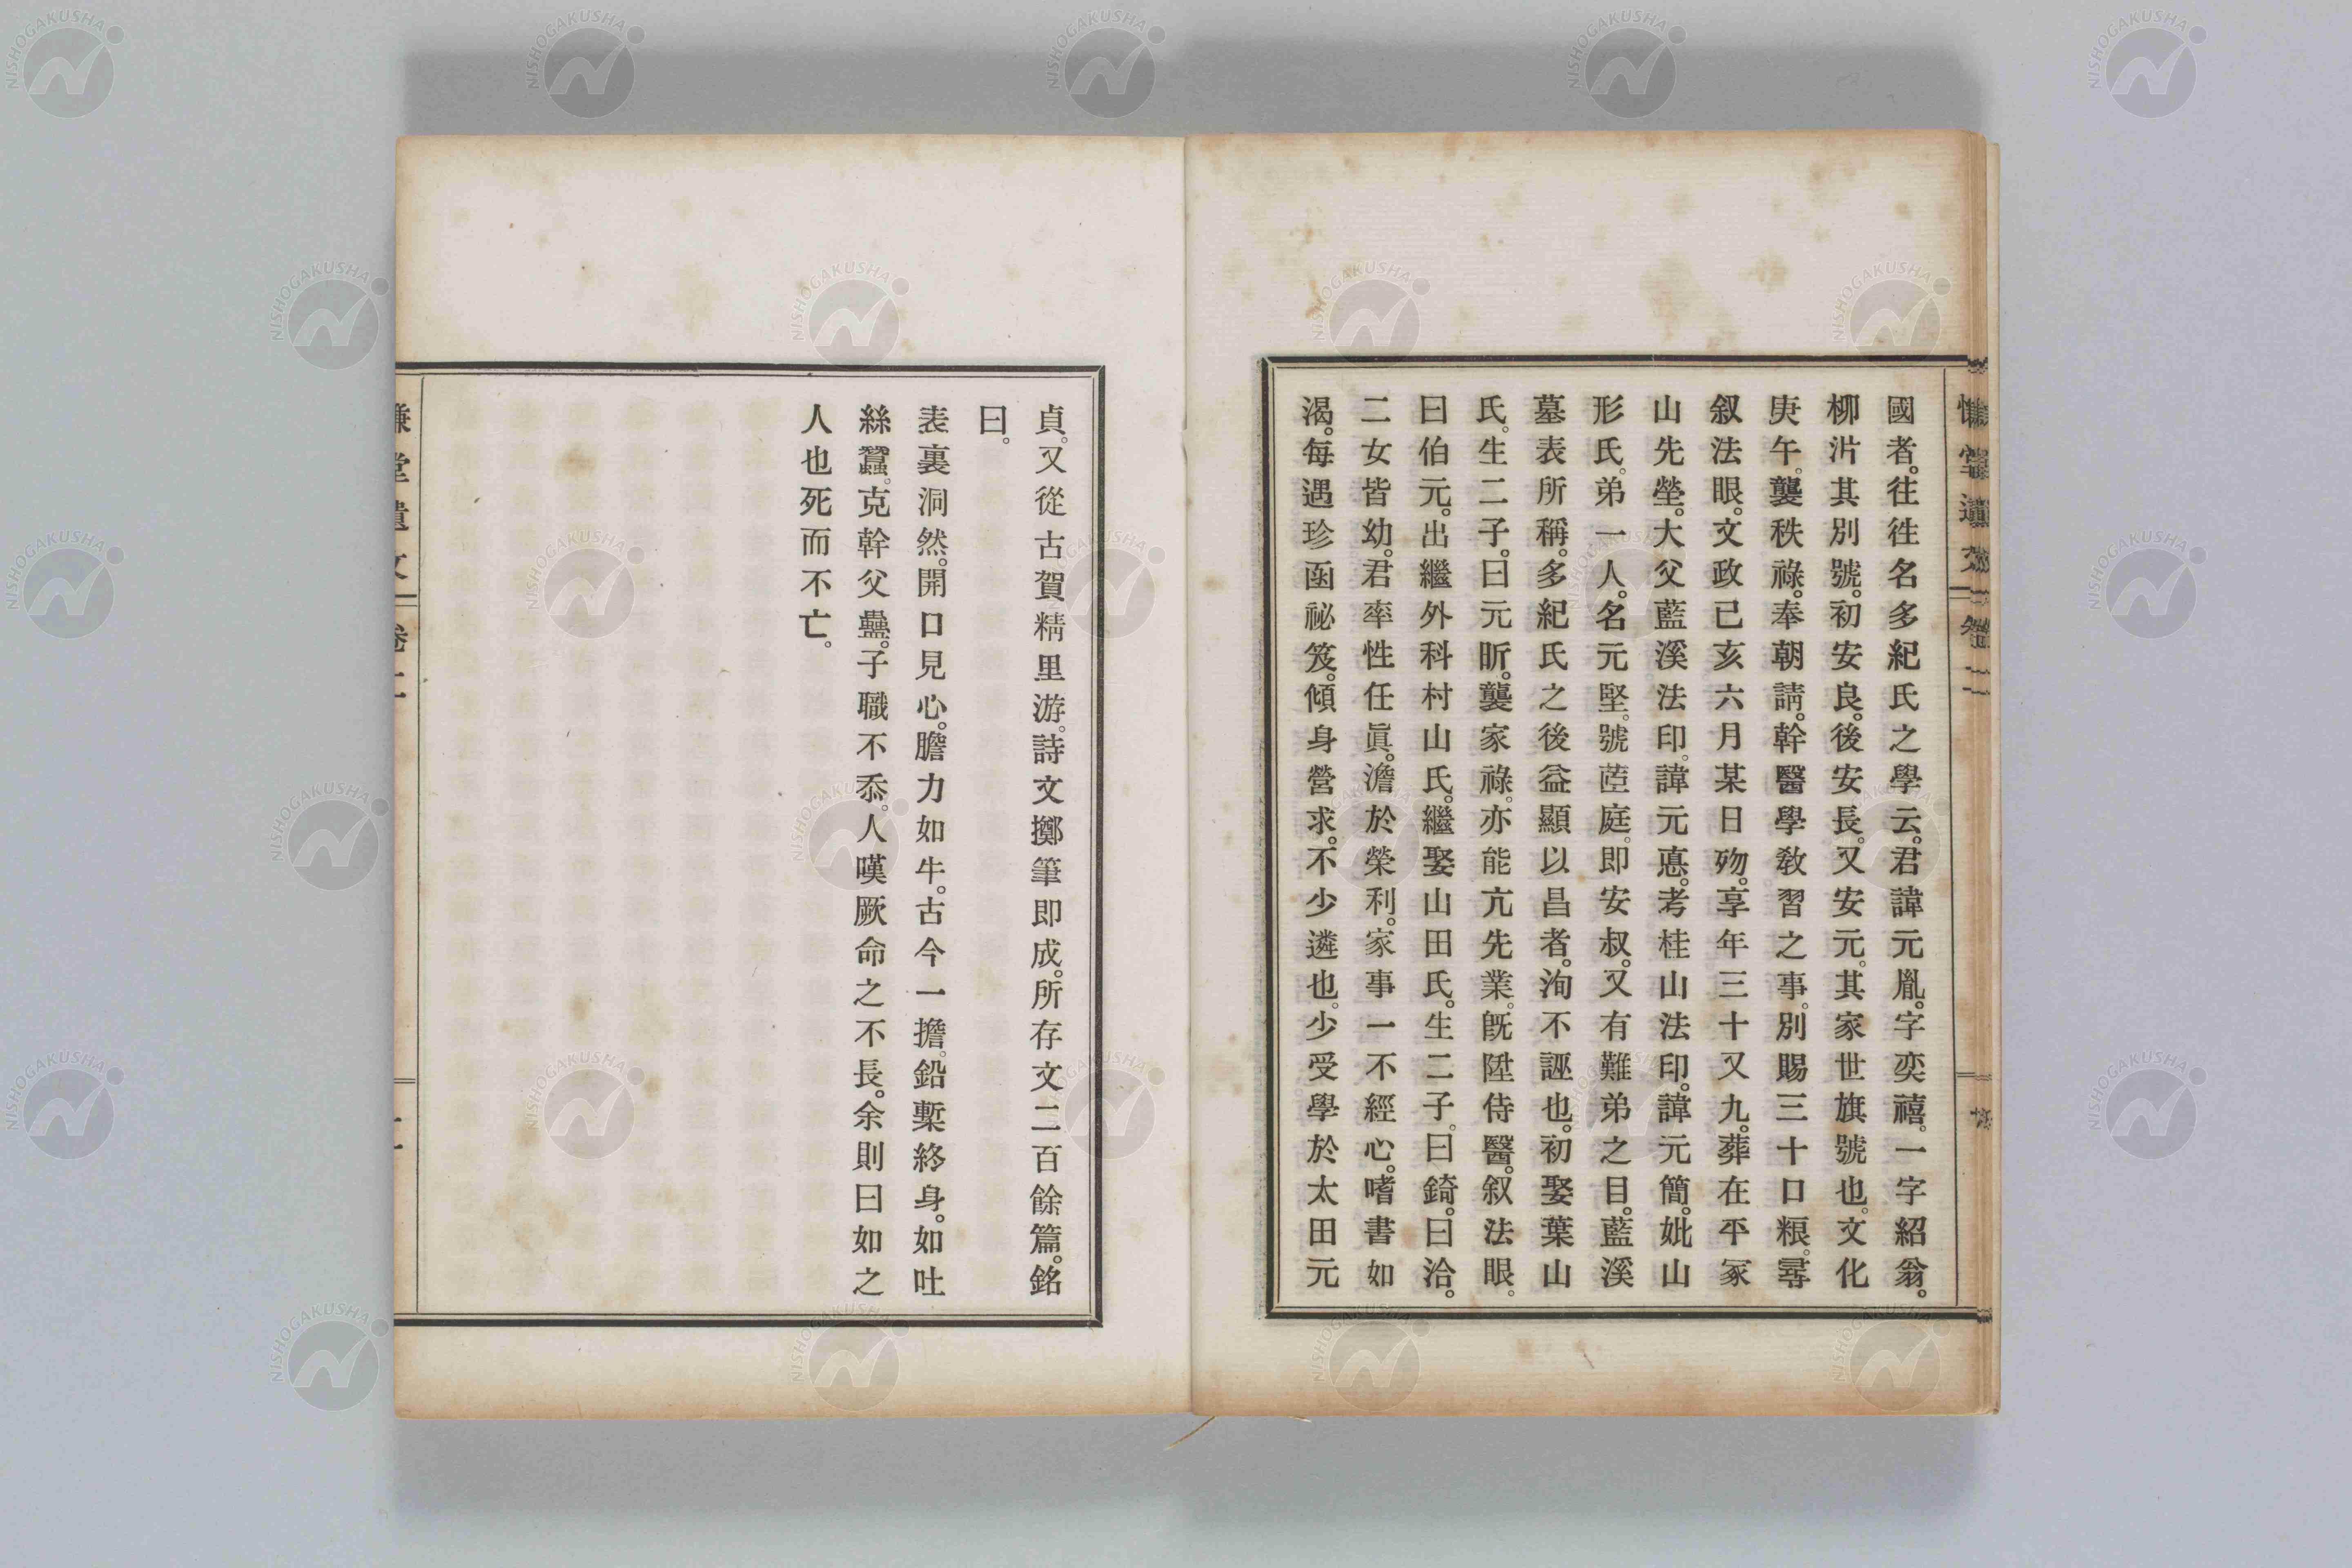 國者。往往名多紀氏之學云。君諱元胤。字奕禧。一字紹翁。
柳沜其別號。初安良。後安長。又安元。其家世旗號也。文化
庚午。襲秩祿。奉朝請。幹醫學敎習之事。別賜三十口粮。尋
叙法眼。文政己亥六月某日歾。享年三十又九。葬在平冢
山先塋。大父藍溪法印。諱元悳。考桂山法印。諱元簡。妣山
形氏。弟一人。名元堅。號茝庭。即安叔。又有難弟之目。藍溪
墓表所稱。多紀氏之後益顯以昌者。洵不誣也。初娶葉山
氏。生二子。曰元昕。襲家祿。亦能亢先業。既陞侍醫。叙法眼。
曰伯元。出繼外科村山氏。繼娶山田氏。生二子。曰錡。曰洽。
二女皆幼。君率性任眞。澹於榮利。家事一不經心。嗜書如
渴。每遇珍函祕笈。傾身營求。不少遴也。少受學於太田元
貞。又從古賀精里游。詩文擲筆即成。所存文二百餘篇。銘
曰。
表裏洞然。開口見心。膽力如牛。古今一擔。鉛槧終身。如吐
絲蠶。克幹父蠱。子職不忝。人嘆厥命之不長。余則曰如之
人也死而不亡。
慊堂遺文 卷二
NISHOGAKUSHA